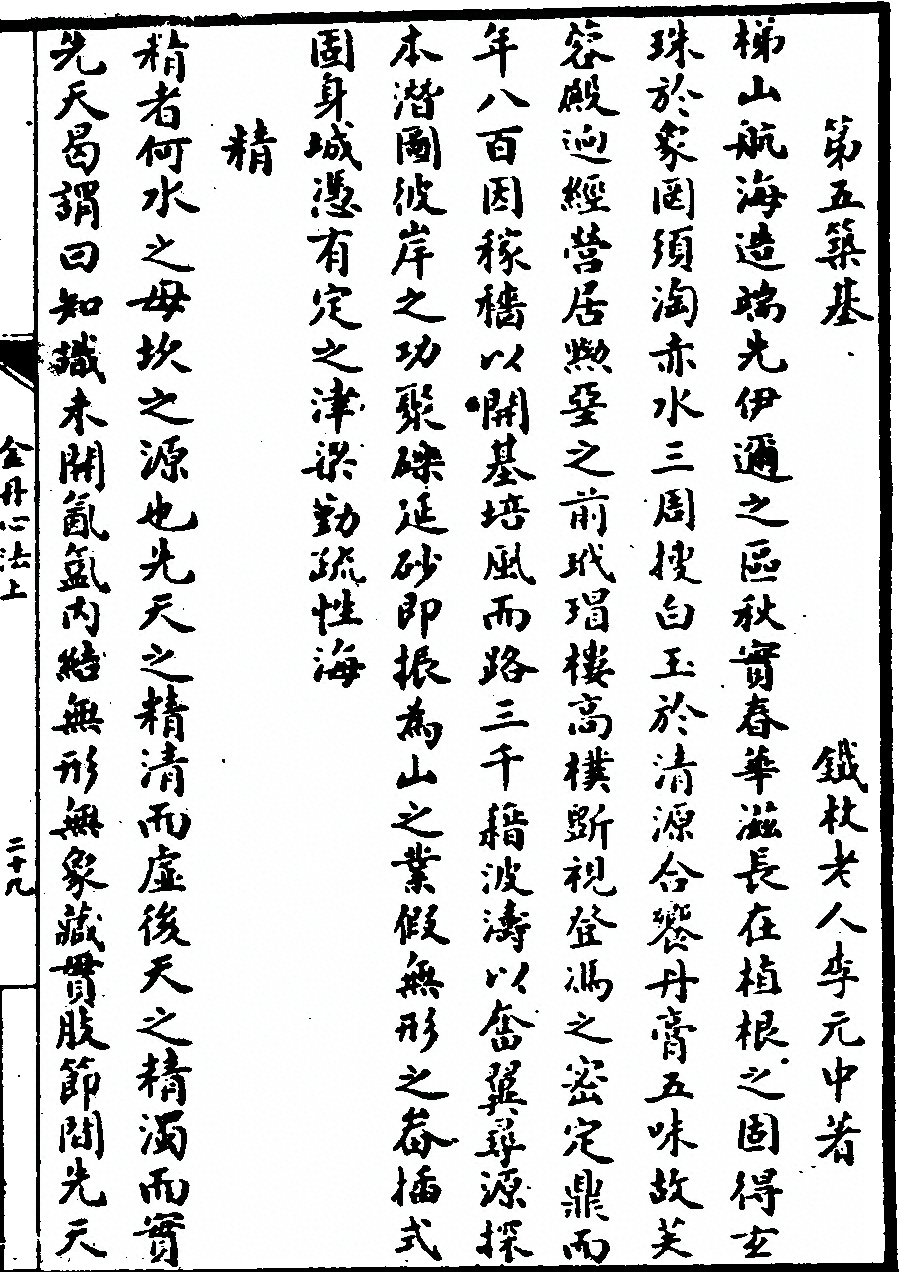 第五築基 鐵杖老人李元中著
梯山航海造端先伊邇之區秋實春華滋長在植根之固得玄
珠於象罔須淘赤水三周搜白玉於清源合饗丹膏五味故芙
蓉殿逈經營居勲堊之前玳瑁樓高樸斲視登馮之密定鼎而
年八百因稼穡以開基培風而路三千藉波濤以奮翼尋源探
本潛圖彼岸之功聚礫延砂即振為山之業假無形之畚插式
固身城憑有定之津梁勤疏性海
精
精者何水之母坎之源也先天之精清而虛後天之精濁而實
先天曷謂曰知識未開氤氳內結無形無象藏貫肢節間先天
金丹心法上
二十九